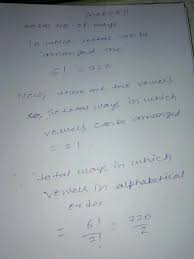 total no. of ways
in which letters can be
arranged are
6! = 720
Now, there are two vowels
so, so total ways in which
vowels can be arranged
= 2!
∴ total ways in which
vowels in alphabetical
order
= 6!/2! = 720/2